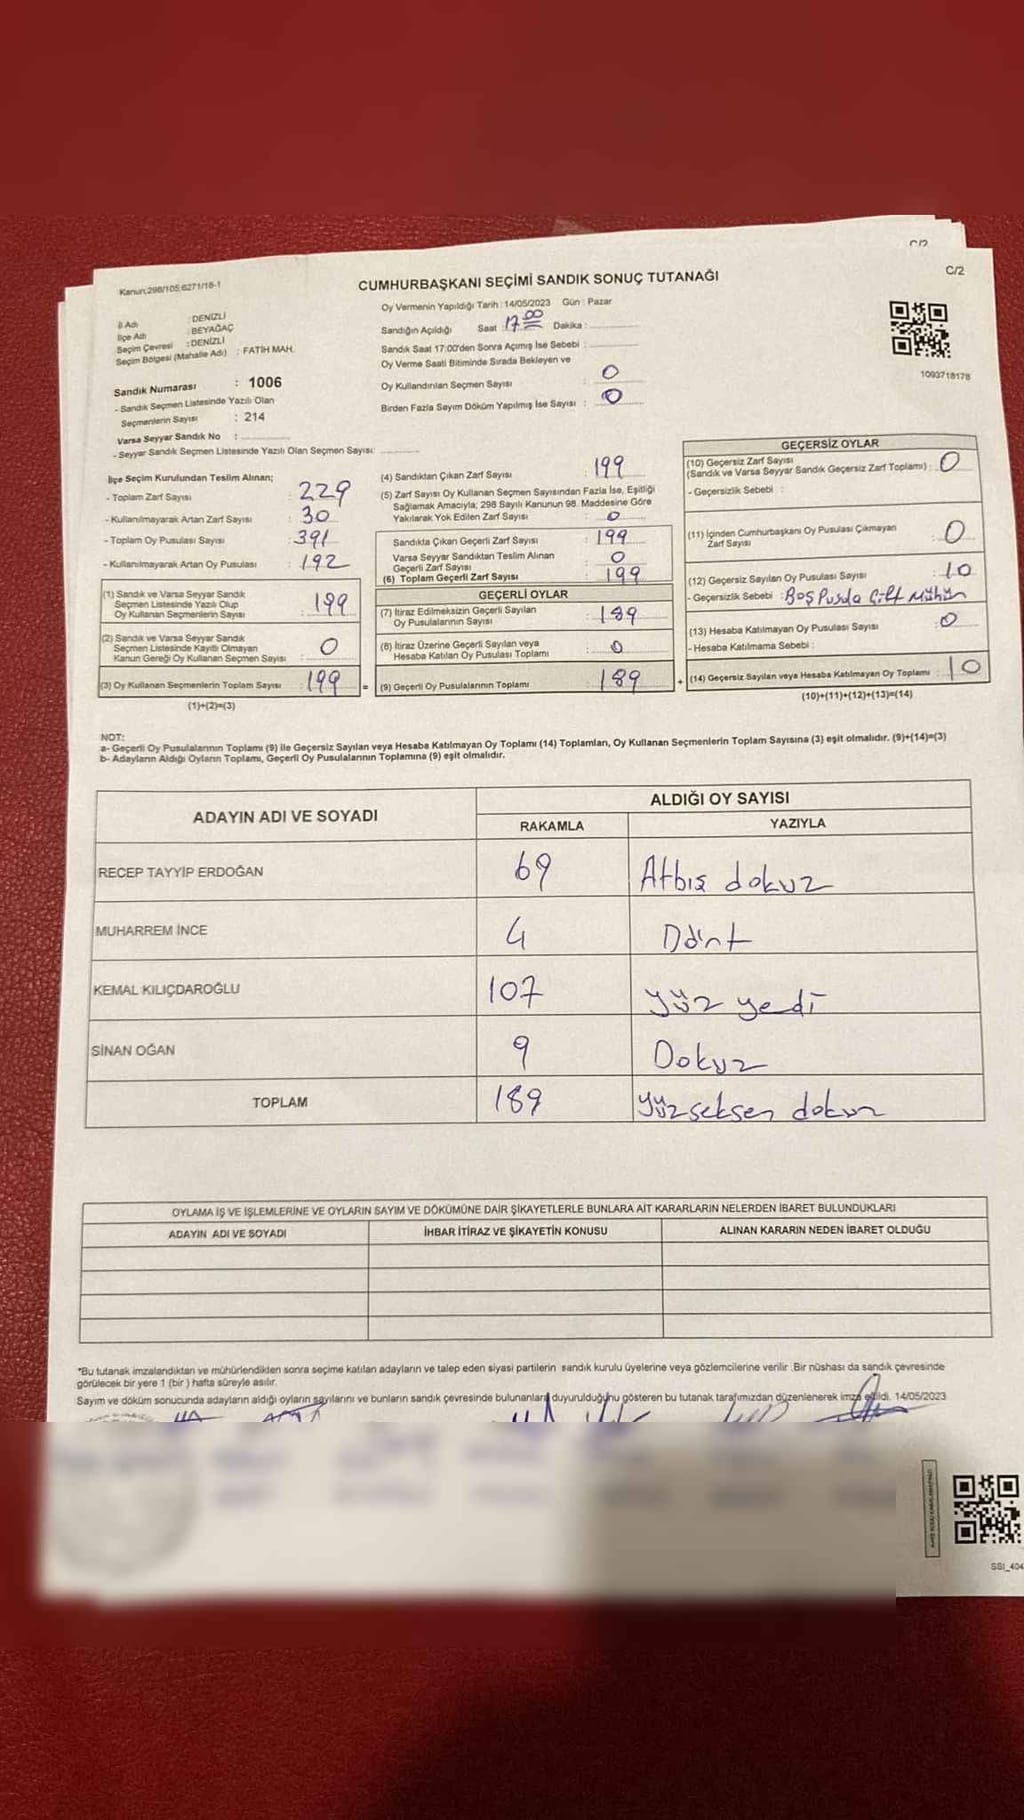 C/2
C/2
Kanun:298/105;6271/18-1
CUMHURBAŞKANI SEÇİMİ SANDIK SONUÇ TUTANAĞI
İl Adı : DENİZLİ
İlçe Adı : BEYAĞAÇ
Seçim Çevresi : DENİZLİ
Seçim Bölgesi (Mahalle Adı) : FATİH MAH.
Sandık Numarası : 1006
- Sandık Seçmen Listesinde Yazılı Olan
Seçmenlerin Sayısı : 214
Varsa Seyyar Sandık No :
- Seyyar Sandık Seçmen Listesinde Yazılı Olan Seçmen Sayısı:
Oy Vermenin Yapıldığı Tarih : 14/05/2023 Gün : Pazar
Sandığın Açıldığı Saat : 17:00 Dakika :
Sandık Saat 17:00'den Sonra Açımış İse Sebebi :
Oy Verme Saati Bitiminde Sırada Bekleyen ve
Oy Kullandırılan Seçmen Sayısı : 0
Birden Fazla Sayım Döküm Yapılmış İse Sayısı : 0
1093718178
İlçe Seçim Kurulundan Teslim Alınan;
- Toplam Zarf Sayısı : 229
- Kullanılmayarak Artan Zarf Sayısı : 30
- Toplam Oy Pusulası Sayısı : 391
- Kullanılmayarak Artan Oy Pusulası : 192
(1) Sandık ve Varsa Seyyar Sandık
Seçmen Listesinde Yazılı Olup
Oy Kullanan Seçmenlerin Sayısı : 199
(2) Sandık ve Varsa Seyyar Sandık
Seçmen Listesinde Kayıtlı Olmayan
Kanun Gereği Oy Kullanan Seçmen Sayısı : 0
(3) Oy Kullanan Seçmenlerin Toplam Sayısı : 199
(1)+(2)=(3)
(4) Sandıktan Çıkan Zarf Sayısı : 199
(5) Zarf Sayısı Oy Kullanan Seçmen Sayısından Fazla İse, Eşitliği
Sağlamak Amacıyla; 298 Sayılı Kanunun 98. Maddesine Göre
Yakılarak Yok Edilen Zarf Sayısı : 0
Sandıkta Çıkan Geçerli Zarf Sayısı : 199
Varsa Seyyar Sandıktan Teslim Alınan
Geçerli Zarf Sayısı : 0
(6) Toplam Geçerli Zarf Sayısı : 199
GEÇERLİ OYLAR
(7) İtiraz Edilmeksizin Geçerli Sayılan
Oy Pusulalarının Sayısı : 189
(8) İtiraz Üzerine Geçerli Sayılan veya
Hesaba Katılan Oy Pusulası Toplamı : 0
= (9) Geçerli Oy Pusulalarının Toplamı : 189
GEÇERSİZ OYLAR
(10) Geçersiz Zarf Sayısı
(Sandık ve Varsa Seyyar Sandık Geçersiz Zarf Toplamı) : 0
- Geçersizlik Sebebi :
(11) İçinden Cumhurbaşkanı Oy Pusulası Çıkmayan
Zarf Sayısı : 0
(12) Geçersiz Sayılan Oy Pusulası Sayısı : 10
- Geçersizlik Sebebi : Boş Pusula Çift Mühür
(13) Hesaba Katılmayan Oy Pusulası Sayısı : 0
- Hesaba Katılmama Sebebi :
+ (14) Geçersiz Sayılan veya Hesaba Katılmayan Oy Toplamı : 10
(10)+(11)+(12)+(13)=(14)
NOT:
a- Geçerli Oy Pusulalarının Toplamı (9) ile Geçersiz Sayılan veya Hesaba Katılmayan Oy Toplamı (14) Toplamları, Oy Kullanan Seçmenlerin Toplam Sayısına (3) eşit olmalıdır. (9)+(14)=(3)
b- Adayların Aldığı Oyların Toplamı, Geçerli Oy Pusulalarının Toplamına (9) eşit olmalıdır.
ADAYIN ADI VE SOYADI ALDIĞI OY SAYISI
RAKAMLA YAZIYLA
RECEP TAYYİP ERDOĞAN 69 Atbış dokuz
MUHARREM İNCE 4 Dört
KEMAL KILIÇDAROĞLU 107 yüz yedi
SİNAN OĞAN 9 Dokuz
TOPLAM 189 yüzseksen dokuz
OYLAMA İŞ VE İŞLEMLERİNE VE OYLARIN SAYIM VE DÖKÜMÜNE DAİR ŞİKAYETLERLE BUNLARA AİT KARARLARIN NELERDEN İBARET BULUNDUKLARI
ADAYIN ADI VE SOYADI İHBAR İTİRAZ VE ŞİKAYETİN KONUSU ALINAN KARARIN NEDEN İBARET OLDUĞU
*Bu tutanak imzalandıktan ve mühürlendikten sonra seçime katılan adayların ve talep eden siyasi partilerin sandık kurulu üyelerine veya gözlemcilerine verilir .Bir nüshası da sandık çevresinde
görülecek bir yere 1 (bir ) hafta süreyle asılır.
Sayım ve döküm sonucunda adayların aldığı oyların sayılarını ve bunların sandık çevresinde bulunanlara duyurulduğunu gösteren bu tutanak tarafımızdan düzenlenerek imza edildi. 14/05/2023
SSI_404